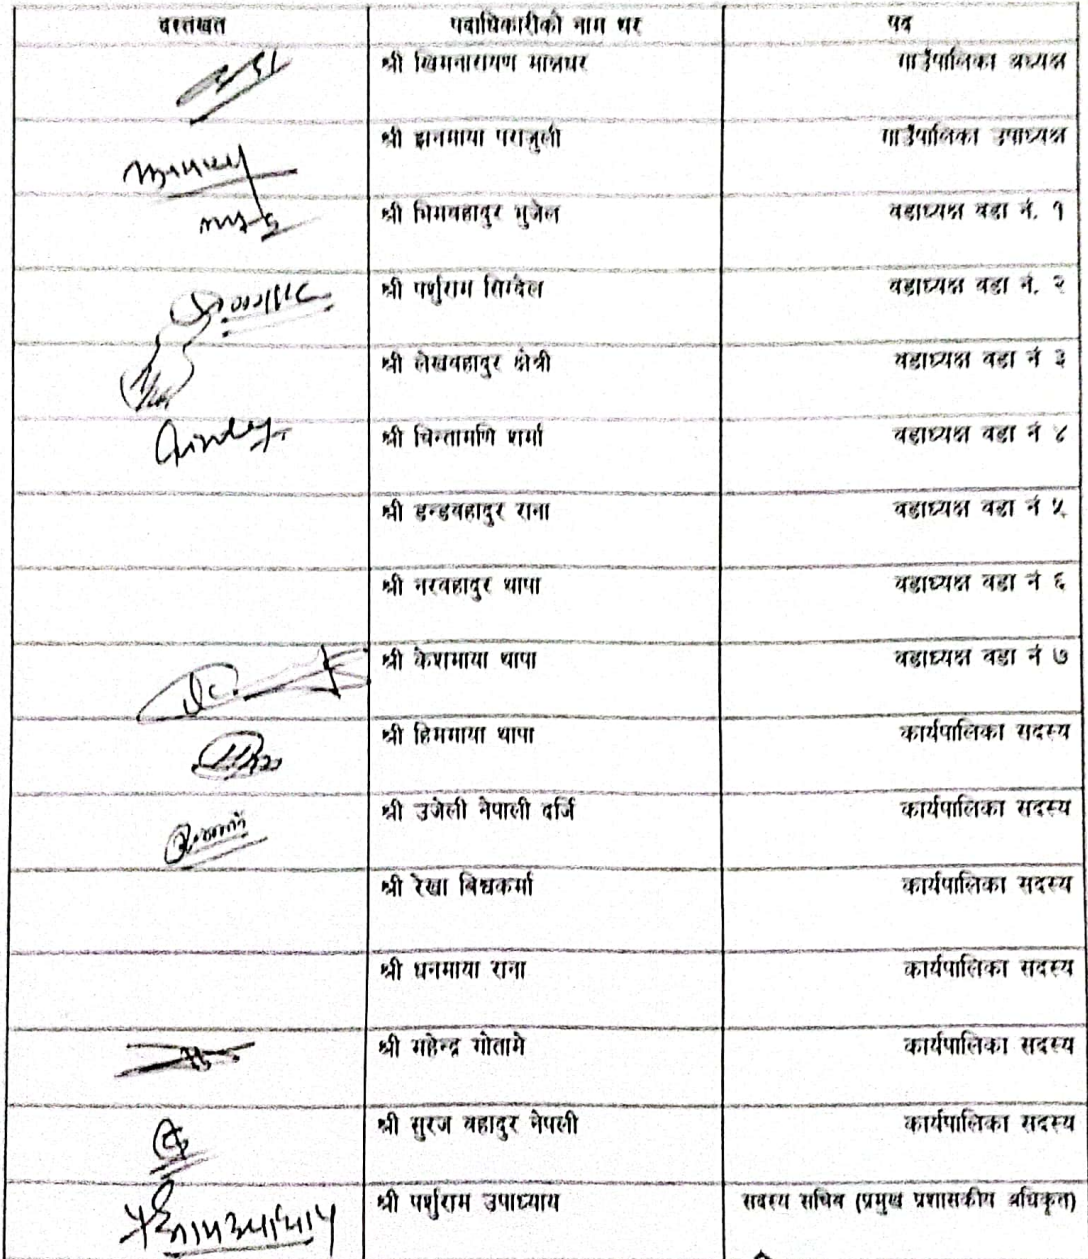 दस्तखत पदाधिकारीको नाम थर पद
श्री खिमनारायण मानन्धर गाउँपालिका अध्यक्ष
श्री ज्ञानमाया पराजुली गाउँपालिका उपाध्यक्ष
श्री भिमबहादुर भुजेल वडाध्यक्ष वडा नं. १
श्री पर्शुराम सिग्देल वडाध्यक्ष वडा नं. २
श्री लेखबहादुर क्षेत्री वडाध्यक्ष वडा नं ३
श्री चिन्तामणि शर्मा वडाध्यक्ष वडा नं ४
श्री डन्डबहादुर राना वडाध्यक्ष वडा नं ५
श्री नरबहादुर थापा वडाध्यक्ष वडा नं ६
श्री केशमाया थापा वडाध्यक्ष वडा नं ७
श्री हिममाया थापा कार्यपालिका सदस्य
श्री उजेली नेपाली दर्जि कार्यपालिका सदस्य
श्री रेखा बिश्वकर्मा कार्यपालिका सदस्य
श्री धनमाया राना कार्यपालिका सदस्य
श्री महेन्द्र गोतामे कार्यपालिका सदस्य
श्री सुरज बहादुर नेपली कार्यपालिका सदस्य
श्री पर्शुराम उपाध्याय सदस्य सचिव (प्रमुख प्रशासकीय अधिकृत)